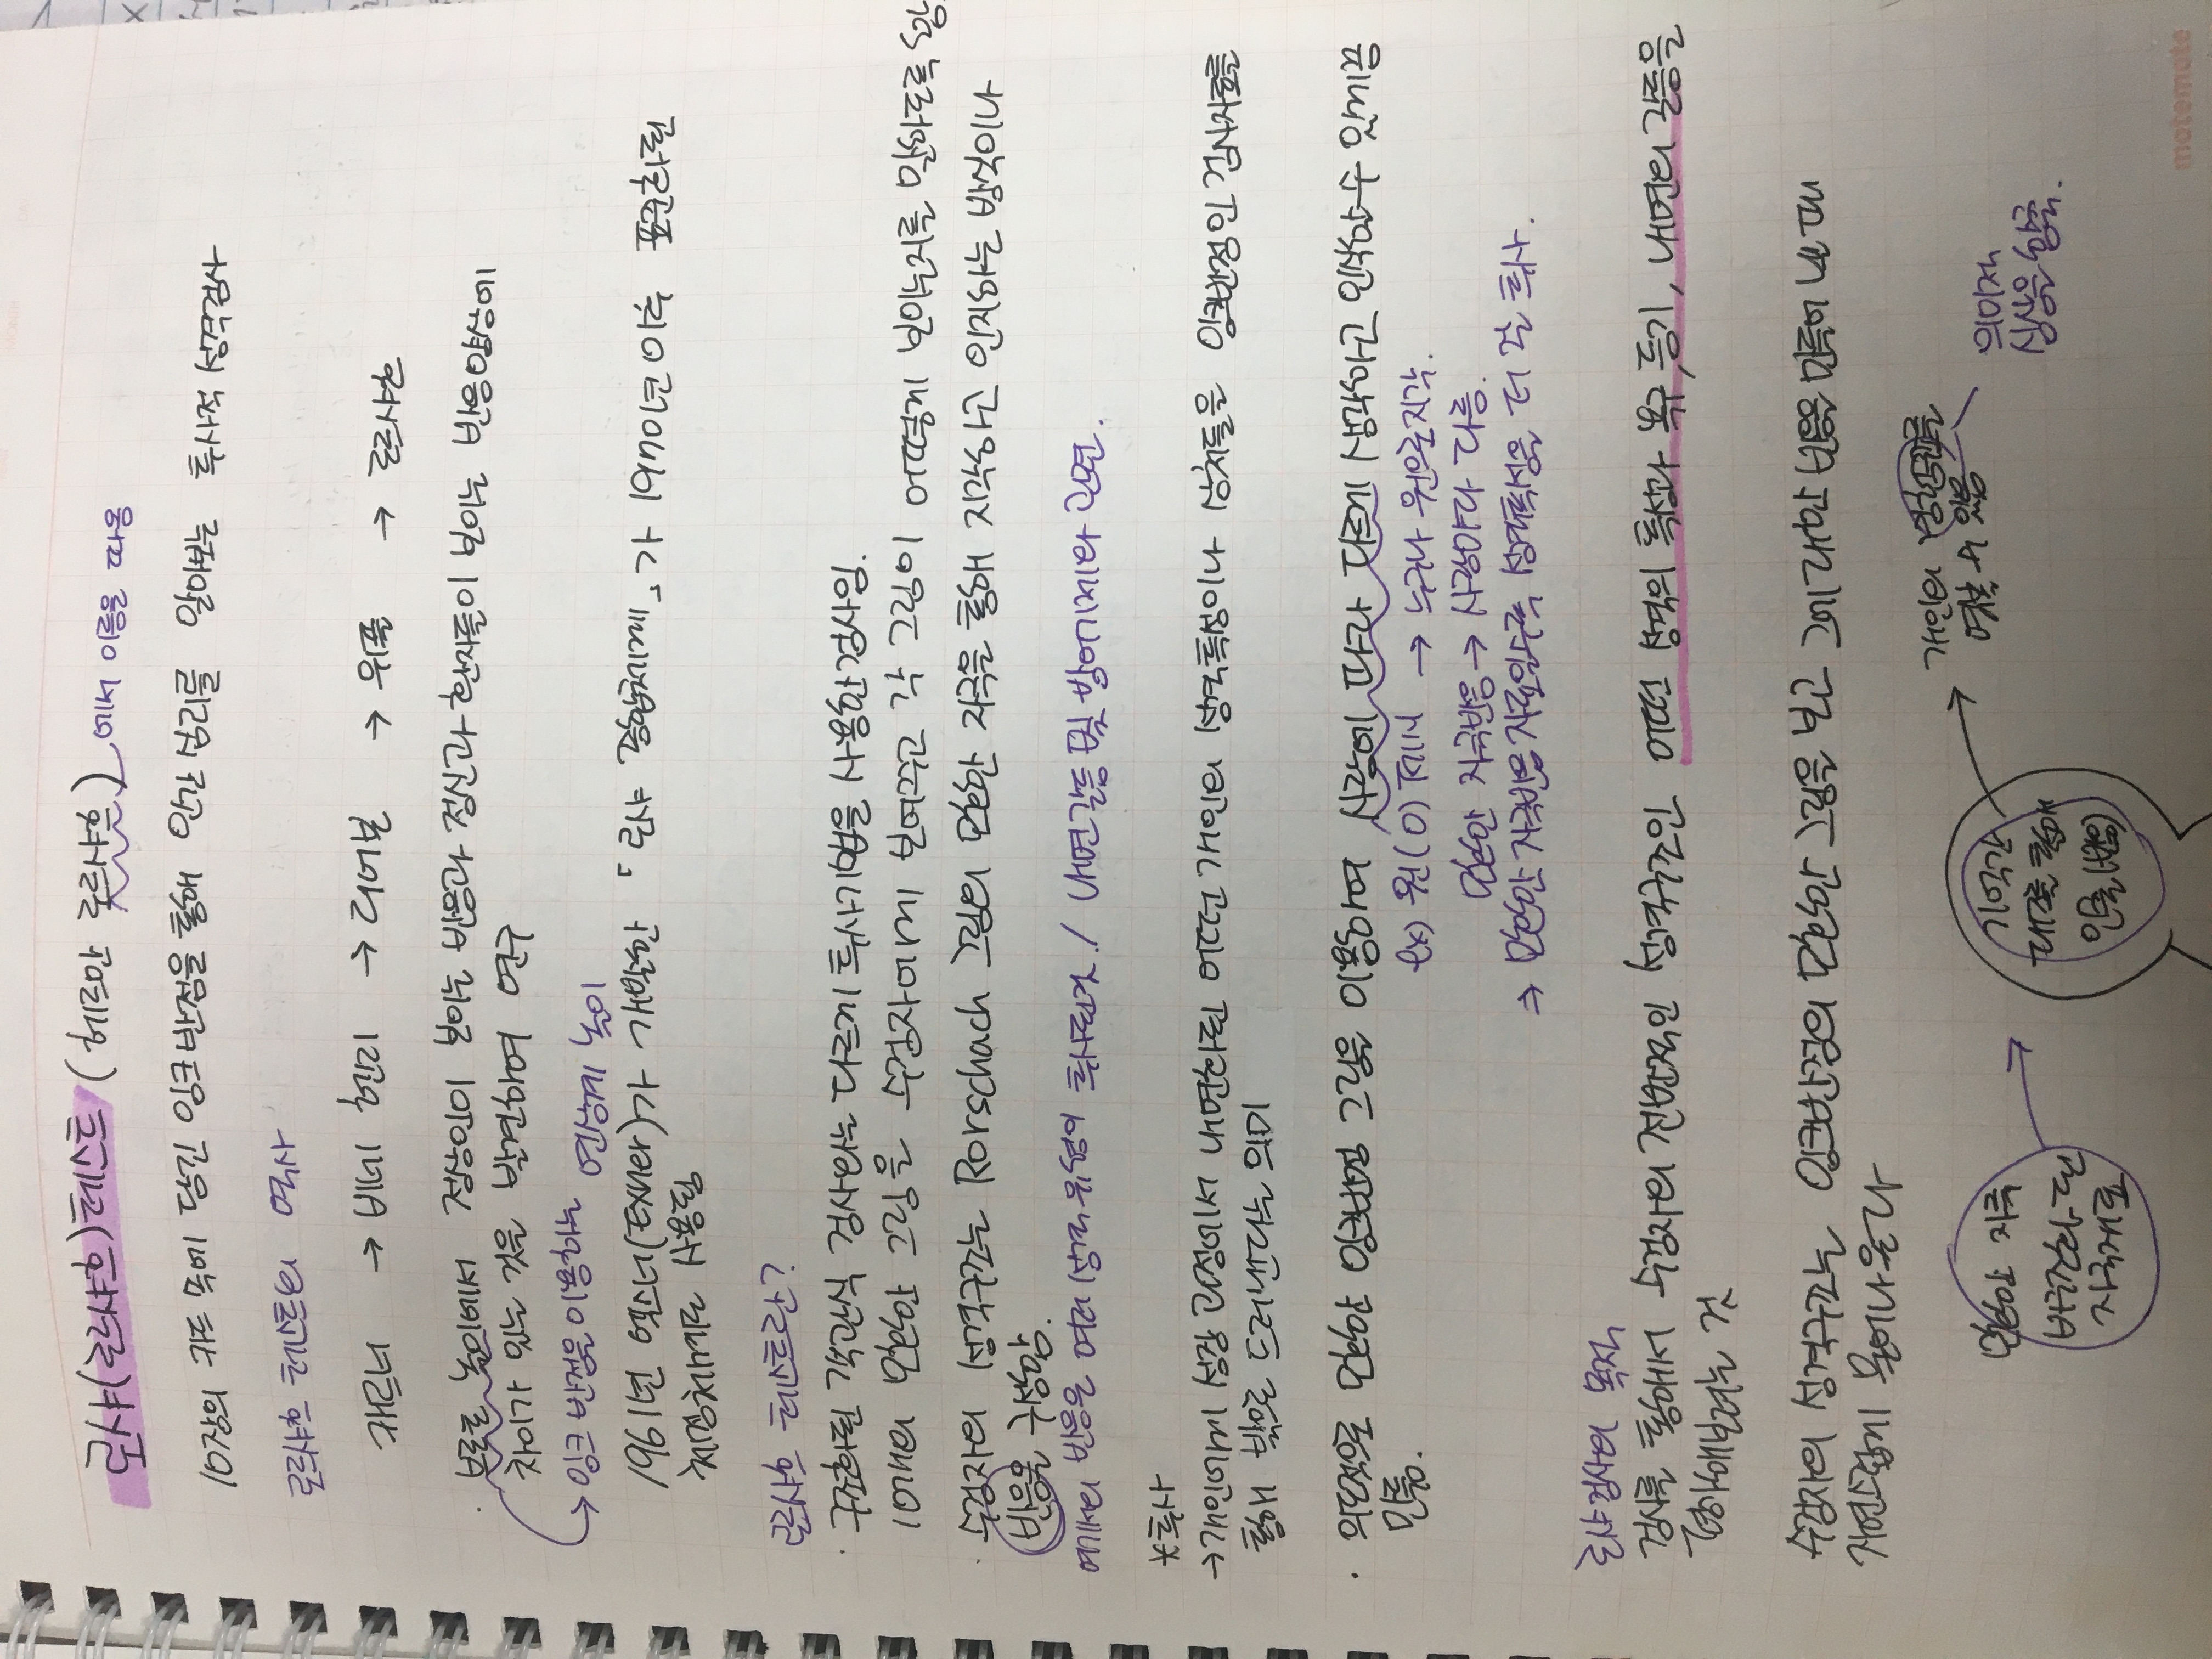 로샤(로르샤흐)테스트 (헤르만 로르샤흐) 에서 이름을 따옴
10장의 카드 속에 담긴 잉크반점을 통해 인간 심리를 알아보는 투사적 성격검사
로르샤흐 테스트의 역사
캐르너 → 비네 헨리 → 디어본 → 위플 → 로르샤흐
· 브로트 놀이에서 정상인이 보이는 반응과 정신과 환자들이 보이는 반응양상에
차이가 있는 것을 발견하여 연구
→ 잉크 반점을 이용하는 연상계 놀이
1961년 엑스너(Exner)가 개발한 「로샤 종합체계」가 1970년 이후 표준화된
채점체계로 사용됨
로르샤흐 테스트란?
· 구조화된 객관식 검사와는 다르게 투사기법을 사용한 검사임.
10개의 모호한 그림을 수검자에게 보여주고 각 그림이 어떻게 보이는지를 말하도록 함.
· 수검자의 성격구조는 Rorschach 그림의 모호한 자극을 통해 지각하고 인지하는 방식이나
반응을 구성함.
여기서의 반응은 여러 성격유형이 투사된것 / 내면갈등 및 방어기제와 관련.
*투사
→ 개인에게 성장 과정에서 내면화된 어떤 개인의 성격특성이나 상처들을 잉크반점인 검사자료를
통해 밖으로 드러낸다는 의미
· 의도적으로 모호한 잉크반점 그림을 이용하여 사람에 따라 다르게 생각하고 인식할 수 있게끔
만듦.
ex) 원(O) 제시 → 누구나 원으로 지각.
모호한 자극반응 → 사람마다 다름.
⇒ 모호한 자극반응 자료일수록 성격특성을 더 잘 투사.
로샤검사의 목적
검사를 통해서 수검자의 전반적인 성격구조인 어떤 성격의 특성과 욕구, 동기, 내면의 갈등을
평가해보려는 것
수검자의 성격구조는 잉크반점의 모호한 그림을 보고 그에 대한 반응을 만들어 낼 때
자연스럽게 묻어나온다
개인의 를
엿볼 수 있음
의미지
상상을 함축.
모호한 자극
비구조화 된
자극재료
기억간
대조를 통해
인출(반응)
motemote